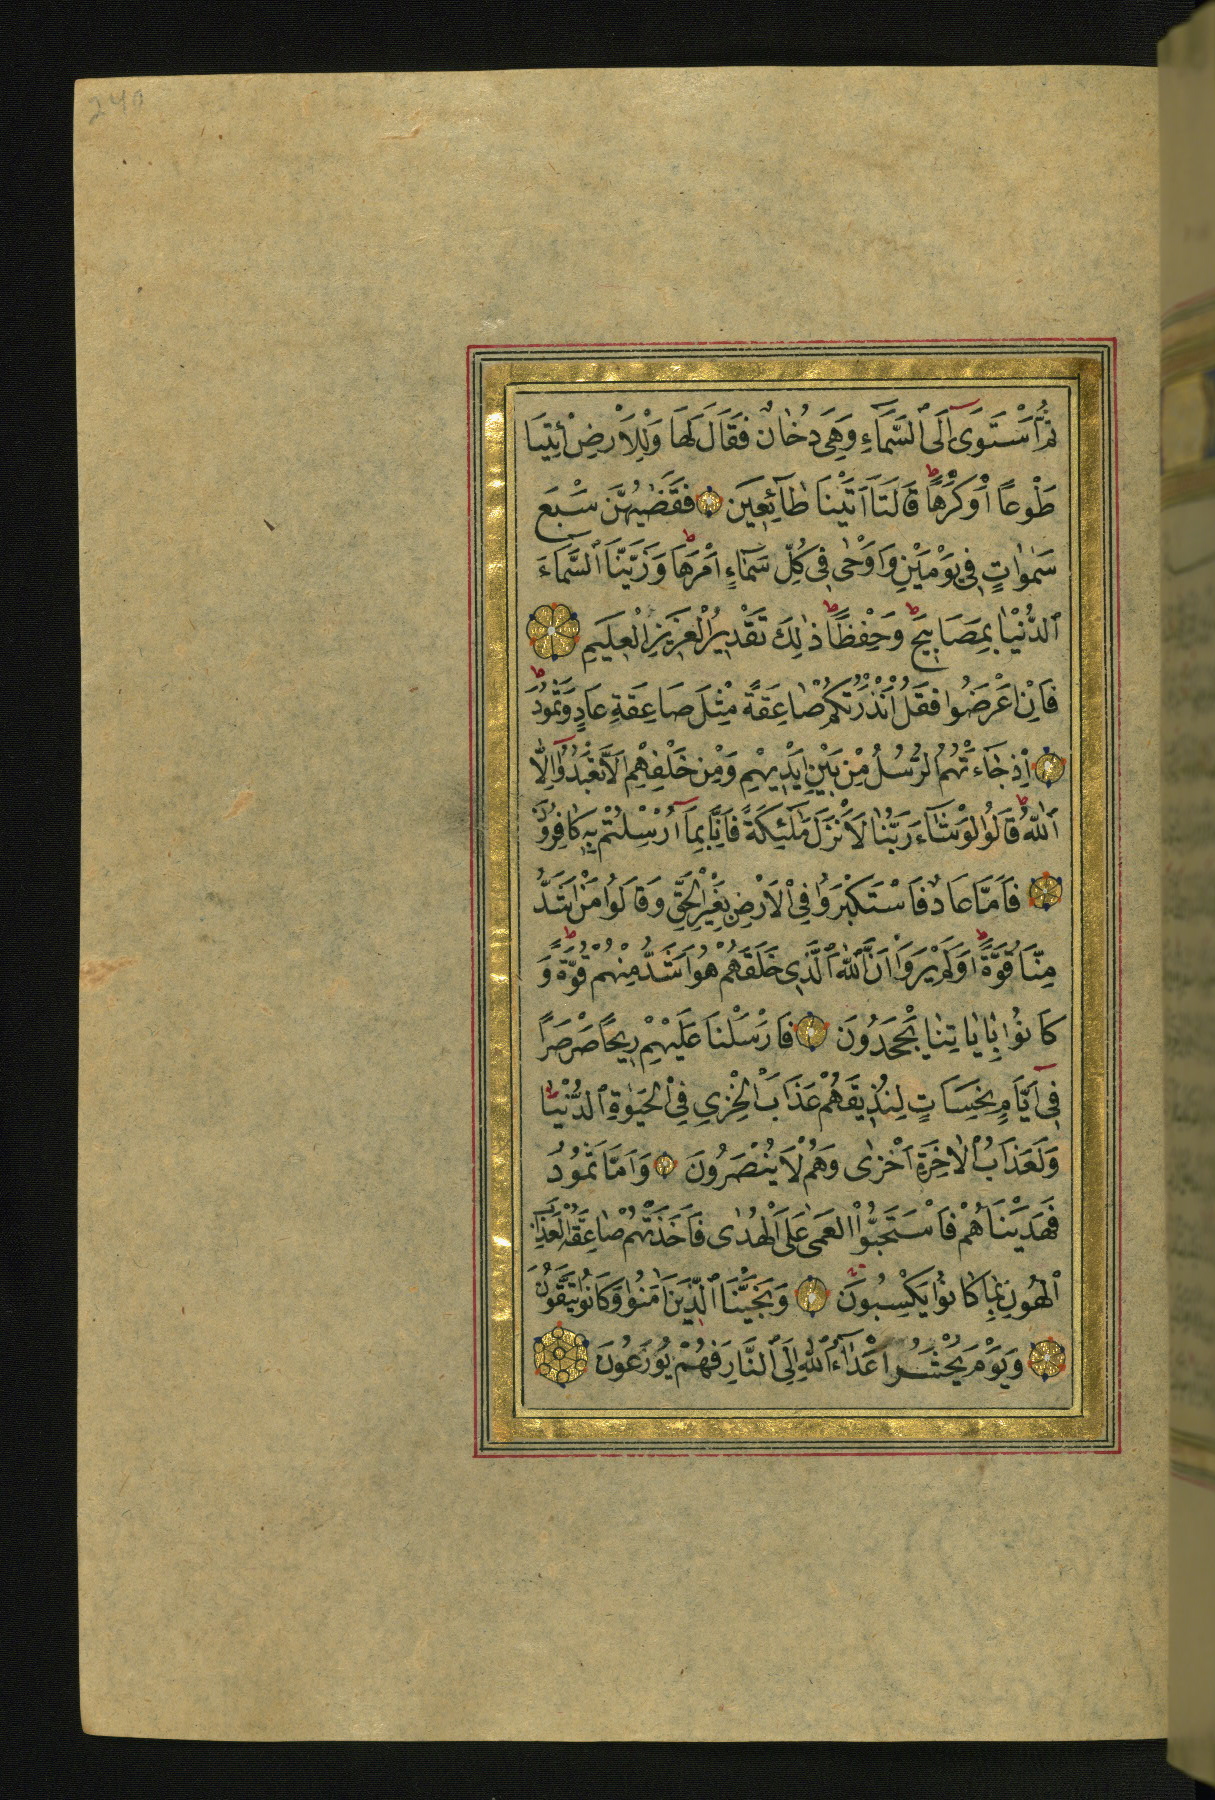 240
ثُمَّ اسْتَوَىٰٓ اِلَى ٱلسَّمَآءِ وَهِىَ دُخَانٌ فَقَالَ لَهَا وَلِلْاَرْضِ ائْتِيَا
طَوْعاً اَوْ كَرْهاًؕ قَالَتَآ اَتَيْنَا طَآئِعِينَ فَقَضٰيهُنَّ سَبْعَ
سَمٰوَاتٍ فِى يَوْمَيْنِ وَاَوْحٰى فِى كُلِّ سَمَآءٍ اَمْرَهَاؕ وَزَيَّنَّا ٱلسَّمَآءَ
ٱلدُّنْيَا بِمَصَابِيحَؕ وَحِفْظاًؕ ذٰلِكَ تَقْدِيرُ الْعَزِيزِ الْعَلِيمِ
فَاِنْ اَعْرَضُوا فَقُلْ اَنْذَرْتُكُمْ صَاعِقَةً مِثْلَ صَاعِقَةِ عَادٍ وَثَمُودَؕ
اِذْ جَآءَتْهُمُ الرُّسُلُ مِنْ بَيْنِ اَيْدِيهِمْ وَمِنْ خَلْفِهِمْ اَلَّا تَعْبُدُوٓا اِلَّا
ٱللّٰهَؕ قَالُوا لَوْ شَآءَ رَبُّنَا لَاَنْزَلَ مَلٰٓئِكَةً فَاِنَّا بِمَآ اُرْسِلْتُمْ بِهِ كَافِرُونَ
فَاَمَّا عَادٌ فَاسْتَكْبَرُوا فِى الْاَرْضِ بِغَيْرِ الْحَقِّ وَقَالُوا مَنْ اَشَدُّ
مِنَّا قُوَّةًؕ اَوَلَمْ يَرَوْا اَنَّ ٱللّٰهَ ٱلَّذِى خَلَقَهُمْ هُوَ اَشَدُّ مِنْهُمْ قُوَّةًؕ وَ
كَانُوا بِاٰيَاتِنَا يَجْحَدُونَ فَاَرْسَلْنَا عَلَيْهِمْ رِيحاً صَرْصَراً
فِىٓ اَيَّامٍ نَحِسَاتٍ لِنُذِيقَهُمْ عَذَابَ الْخِزْىِ فِى الْحَيٰوةِ ٱلدُّنْيَاؕ
وَلَعَذَابُ الْاٰخِرَةِ اَخْزٰى وَهُمْ لَا يُنْصَرُونَ وَاَمَّا ثَمُودُ
فَهَدَيْنَاهُمْ فَاسْتَحَبُّوا الْعَمٰى عَلَى الْهُدٰى فَاَخَذَتْهُمْ صَاعِقَةُ الْعَذَابِ
ٱلْهُونِ بِمَا كَانُوا يَكْسِبُونَ وَنَجَّيْنَا ٱلَّذِينَ اٰمَنُوا وَكَانُوا يَتَّقُونَ
وَيَوْمَ يُحْشَرُ اَعْدَآءُ ٱللّٰهِ اِلَى ٱلنَّارِ فَهُمْ يُوزَعُونَ